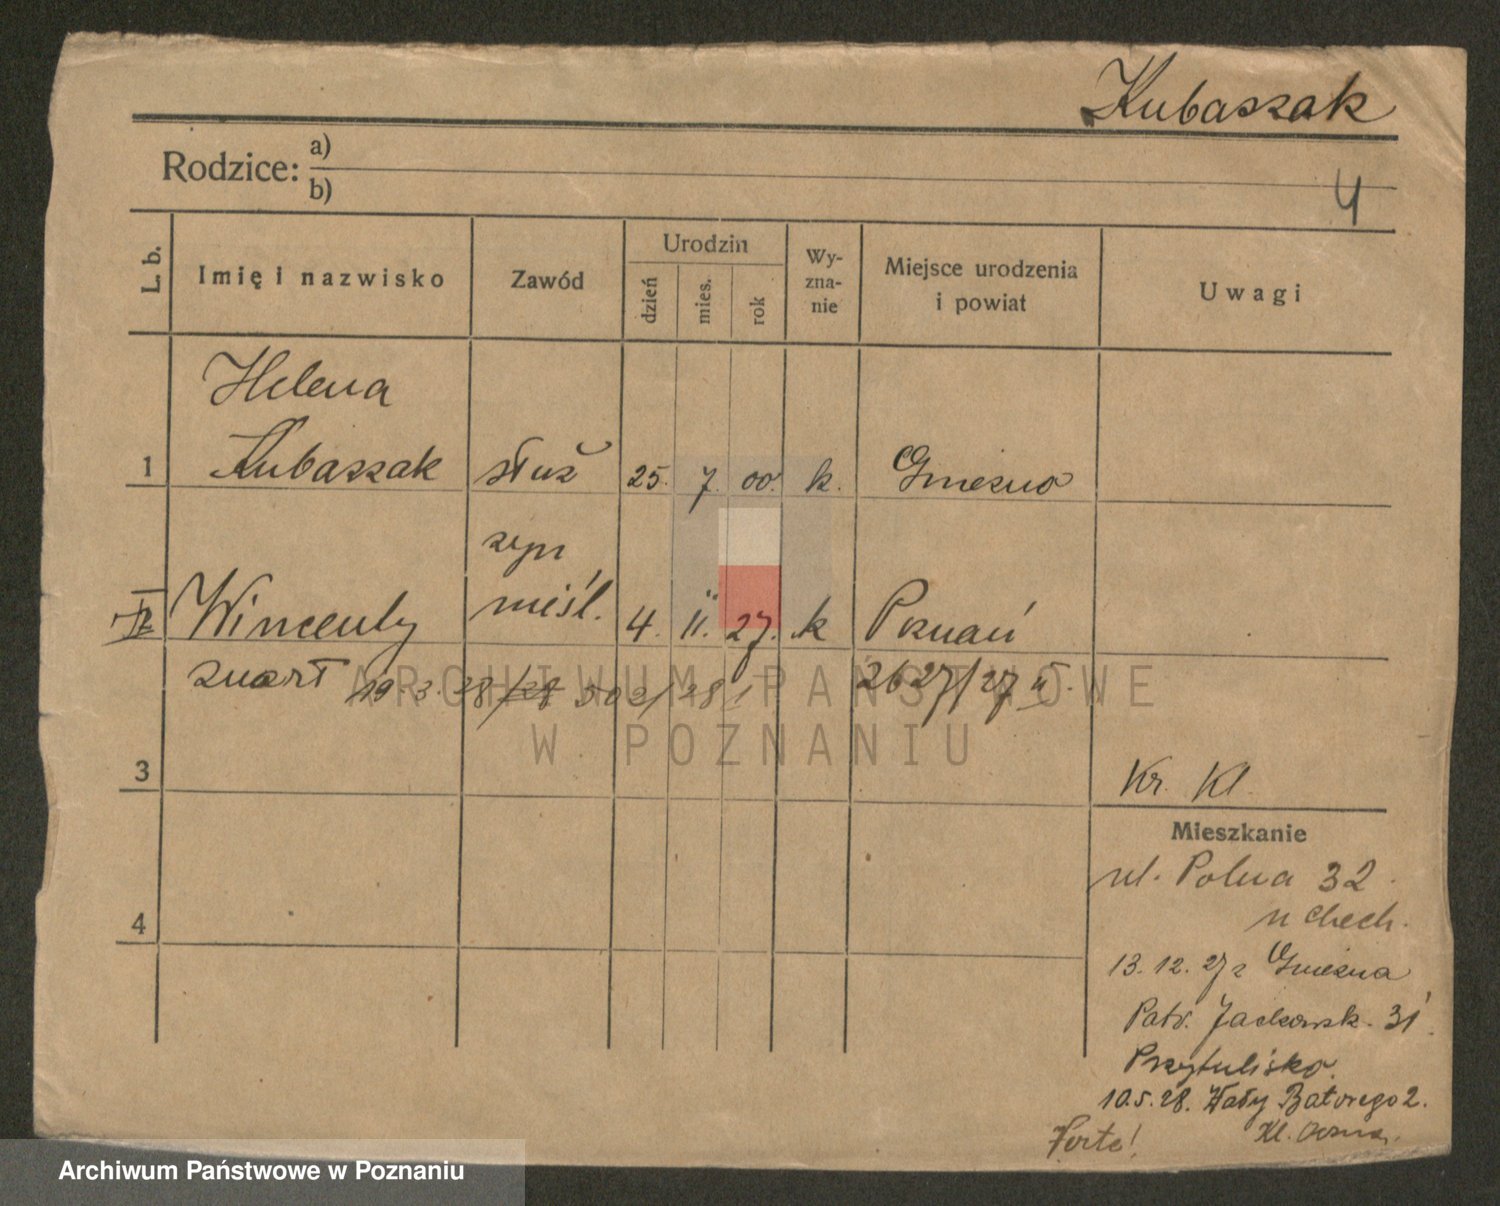 Kubaszak
Rodzice: a)
b)
4
L. b.
Imię i nazwisko
Zawód
Urodzin
dzień
mies.
rok
Wy-
zna-
nie
Miejsce urodzenia
i powiat
Uwagi
Helena
1 Kubaszak służ 25. 7. 00. k. Gniezno
syn
II Wincenty miśl. 4. 11. 27. k Poznań
zmarł 19. 3. 28/28 502/28 2627/27 II.
ARCHIWUM PAŃSTWOWE
W POZNANIU
3
Kr. Kl.
Mieszkanie
ul. Polna 32
u Chech.
4
13. 12. 27 z Gniezna
Patr. Jackowsk. 31
Przytulisko.
10.5.28. Wały Batorego 2.
Kl.
Verte!
Archiwum Państwowe w Poznaniu